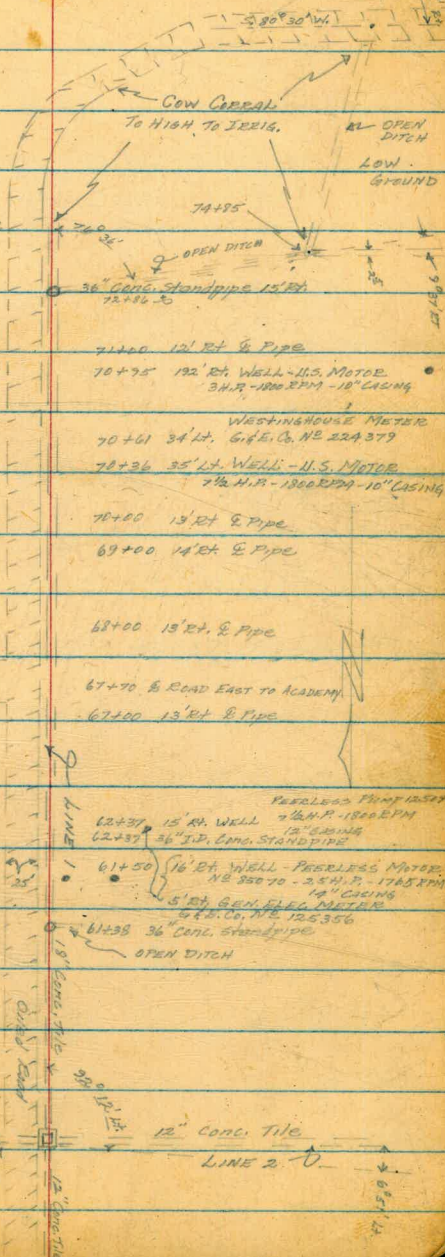 S. 80° 30' W.
COW CORRAL
TO HIGH TO IRRIG.
OPEN
DITCH
LOW
GROUND
74+85
76° 36'
OPEN DITCH
25
9° 37' RT
36" Conc. Standpipe 15' Rt.
72+86
71+00 12' Rt ℄ Pipe
70+95 192' Rt. WELL - U.S. MOTOR
3 H.P. - 1800 RPM - 10" CASING
WESTINGHOUSE METER
70+61 34' Lt. G.&E. Co. Nº 224379
70+36 35' Lt. WELL - U.S. MOTOR
7½ H.P. - 1800 RPM - 10" CASING
70+00 13' Rt ℄ Pipe
69+00 14' Rt. ℄ Pipe
68+00 13' Rt. ℄ Pipe
67+70 ℄ ROAD EAST TO ACADEMY
67+00 13' Rt ℄ Pipe
LINE 1
PEERLESS PUMP
62+37 15' Rt. WELL 7½ H.P. - 1800 RPM
12" CASING
62+37 36" I.D. Conc. STANDPIPE
61+50 16' Rt. WELL - PEERLESS MOTOR
Nº 35070 - 25 H.P. 1765 RPM
14" CASING
5' Rt. GEN. ELEC. METER
G.&E. Co. Nº 125356
25
61+38 36" Conc. Standpipe
OPEN DITCH
18" Conc. Tile
Road
12" Conc. Tile
LINE 2
6° 51' Lt
12" Conc. Tile